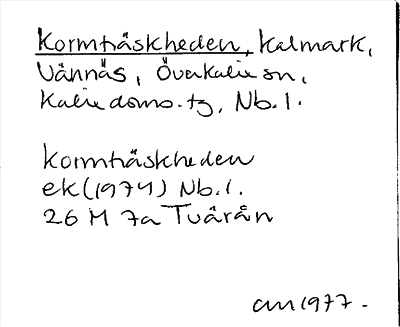 Kormträskheden, Kalmark,
Vännäs, Överkalix sn,
Kalix doms. tg, Nb. l.
Kormträskheden
ek (1974) Nb. l.
26 M 7a Tvärån
am 1977.